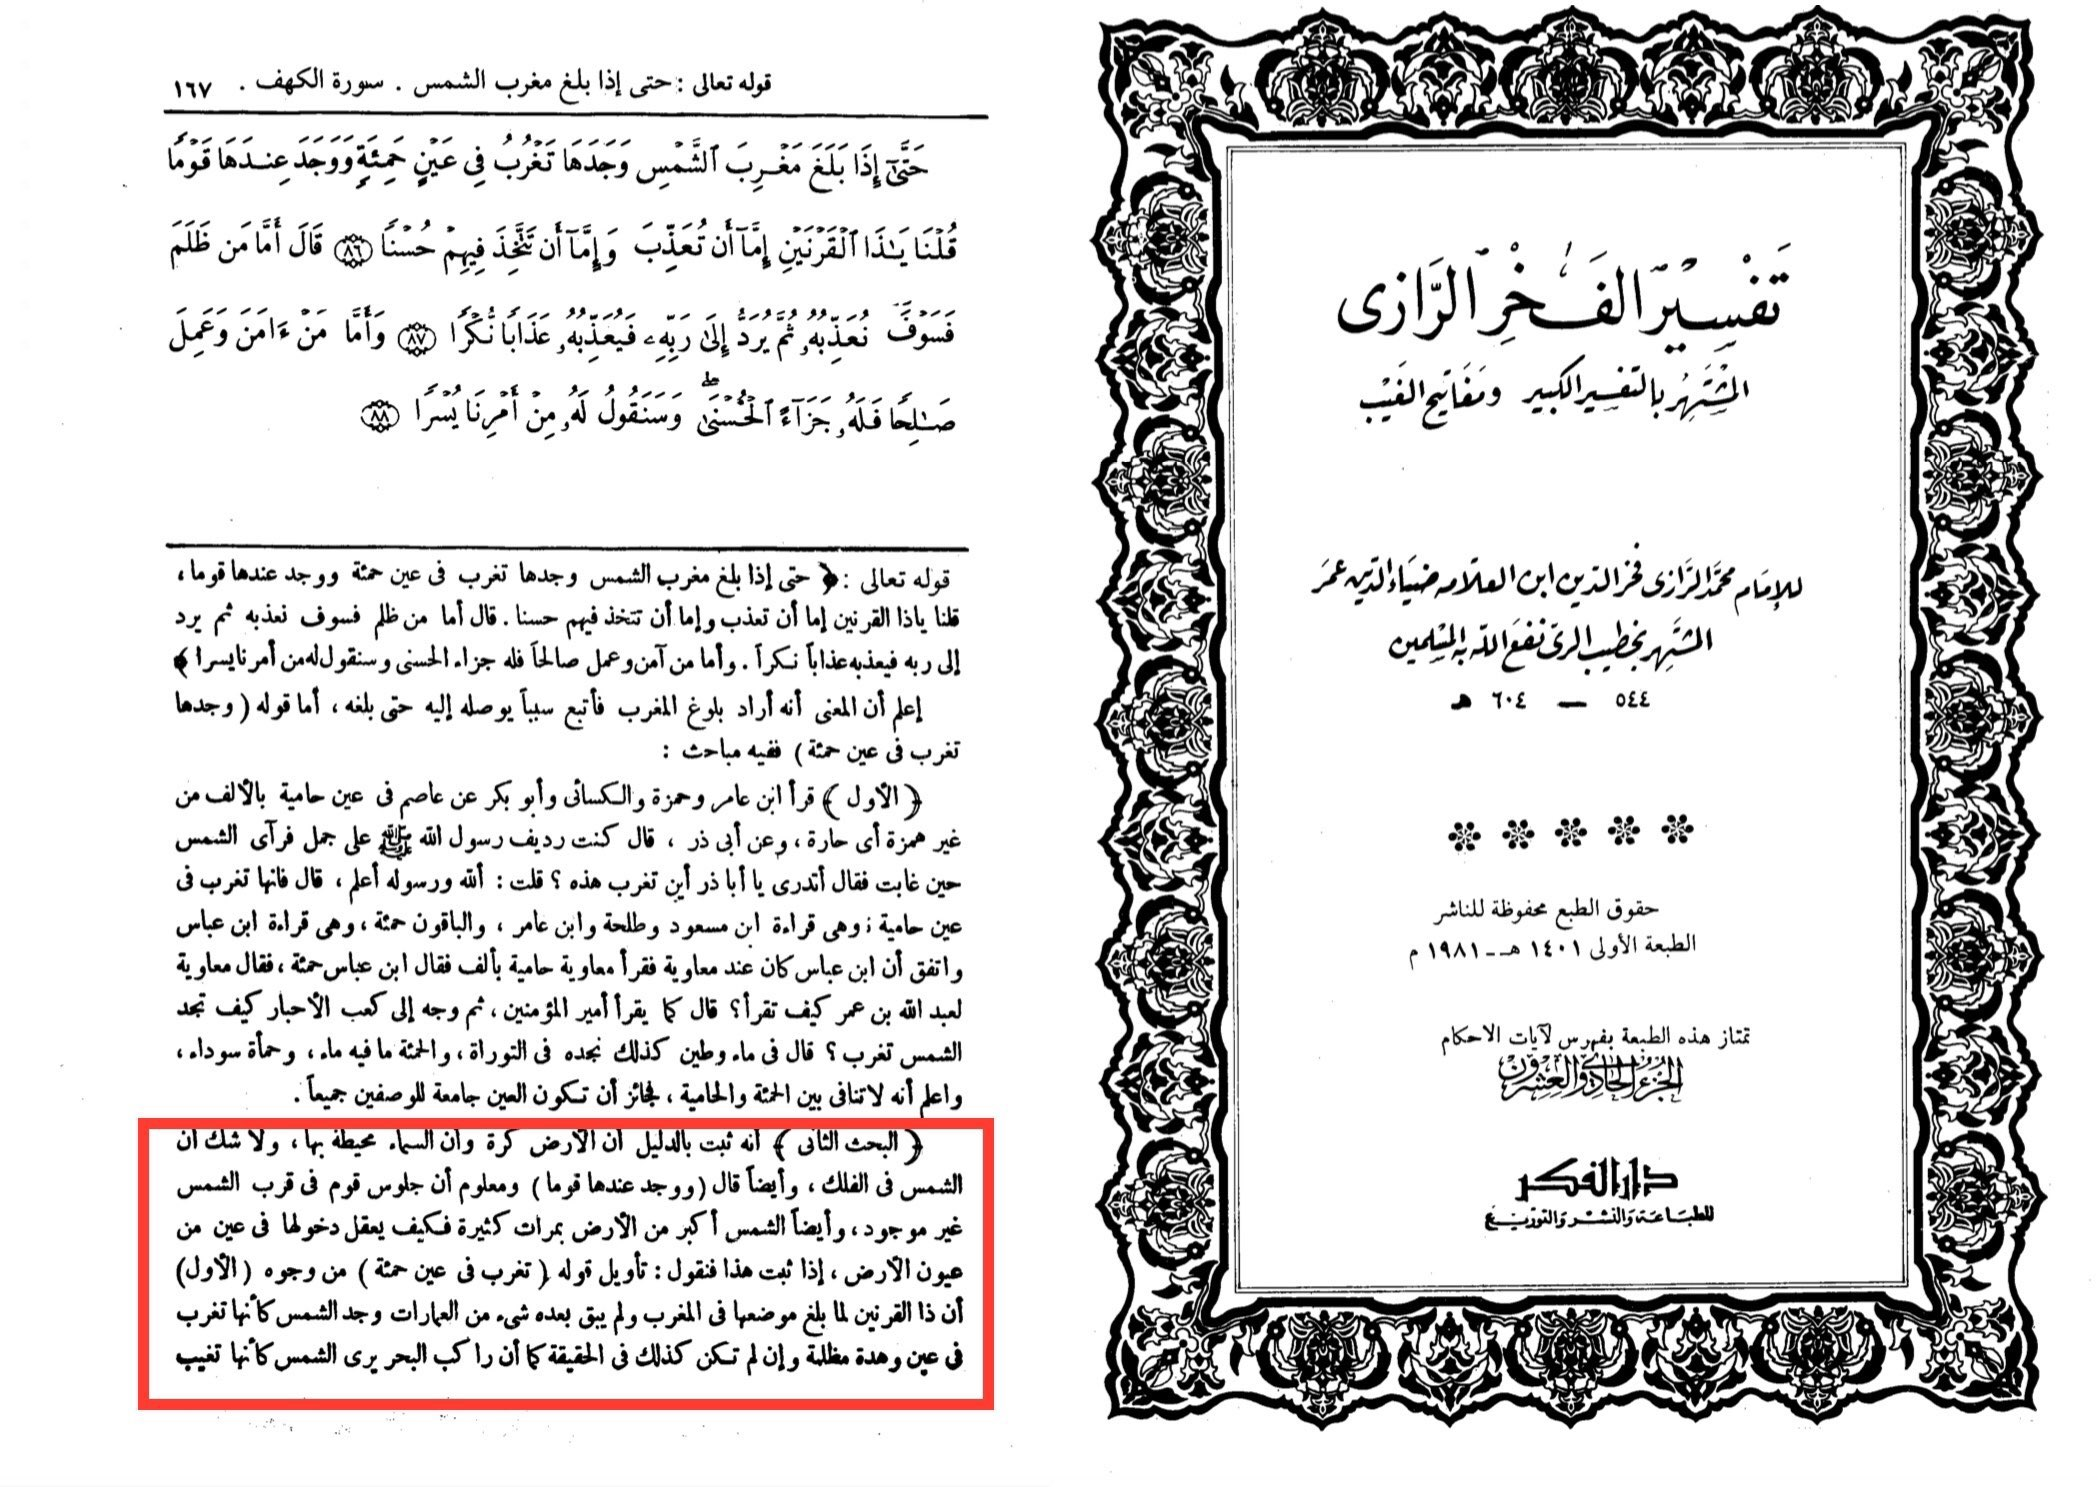 قوله تعالى : حتى إذا بلغ مغرب الشمس . سورة الكهف . ١٦٧
حَتَّىٰٓ إِذَا بَلَغَ مَغْرِبَ ٱلشَّمْسِ وَجَدَهَا تَغْرُبُ فِى عَيْنٍ حَمِئَةٍ وَوَجَدَ عِندَهَا قَوْمًا
قُلْنَا يَـٰذَا ٱلْقَرْنَيْنِ إِمَّآ أَن تُعَذِّبَ وَإِمَّآ أَن تَتَّخِذَ فِيهِمْ حُسْنًا ﴿٨٦﴾ قَالَ أَمَّا مَن ظَلَمَ
فَسَوْفَ نُعَذِّبُهُۥ ثُمَّ يُرَدُّ إِلَىٰ رَبِّهِۦ فَيُعَذِّبُهُۥ عَذَابًا نُّكْرًا ﴿٨٧﴾ وَأَمَّا مَنْ ءَامَنَ وَعَمِلَ
صَـٰلِحًا فَلَهُۥ جَزَآءً ٱلْحُسْنَىٰ ۖ وَسَنَقُولُ لَهُۥ مِنْ أَمْرِنَا يُسْرًا ﴿٨٨﴾
قوله تعالى : ﴿ حتى إذا بلغ مغرب الشمس وجدها تغرب فى عين حمئة ووجد عندها قوما ،
قلنا ياذا القرنين إما أن تعذب وإما أن تتخذ فيهم حسنا . قال أما من ظلم فسوف نعذبه ثم يرد
إلى ربه فيعذبه عذاباً نكراً . وأما من آمن وعمل صالحاً فله جزاء الحسنى وسنقول له من أمرنا يسرا ﴾
إعلم أن المعنى أنه أراد بلوغ المغرب فأتبع سبباً يوصله إليه حتى بلغه ، أما قوله ( وجدها
تغرب فى عين حمئة ) ففيه مباحث :
﴿ الأول ﴾ قرأ ابن عامر وحمزة والكسائى وأبو بكر عن عاصم فى عين حامية بالألف من
غير همزة أى حارة ، وعن أبى ذر ، قال كنت رديف رسول الله ﷺ على جمل فرآى الشمس
حين غابت فقال أتدرى يا أبا ذر أين تغرب هذه ؟ قلت : ألله ورسوله أعلم ، قال فانها تغرب فى
عين حامية ؛ وهى قراءة ابن مسعود وطلحة وابن عامر ، والباقون حمئة ، وهى قراءة ابن عباس
واتفق أن ابن عباس كان عند معاوية فقرأ معاوية حامية بألف فقال ابن عباس حمئة ، فقال معاوية
لعبد الله بن عمر كيف تقرأ ؟ قال كما يقرأ أمير المؤمنين ، ثم وجه إلى كعب الأحبار كيف تجد
الشمس تغرب ؟ قال فى ماء وطين كذلك نجده فى التوراة ، والحمئة ما فيه ماء ، وحمأة سوداء ،
واعلم أنه لا تنافى بين الحمئة والحامية ، فجائز أن تكون العين جامعة للوصفين جميعاً .
﴿ البحث الثانى ﴾ أنه ثبت بالدليل أن الأرض كرة وأن السماء محيطة بها ، ولا شك أن
الشمس فى الفلك ، وأيضاً قال ( ووجد عندها قوما ) ومعلوم أن جلوس قوم فى قرب الشمس
غير موجود ، وأيضاً الشمس أكبر من الأرض بمرات كثيرة فكيف يعقل دخولها فى عين من
عيون الأرض ، إذا ثبت هذا فنقول : تأويل قوله ( تغرب فى عين حمئة ) من وجوه ( الأول )
أن ذا القرنين لما بلغ موضعها فى المغرب ولم يبق بعده شىء من العمارات وجد الشمس كأنها تغرب
فى عين وهدة مظلمة وإن لم تكن كذلك فى الحقيقة كما أن راكب البحر يرى الشمس كأنها تغيب
تَفْسِيرُ الفَخْرِ الرَّازِى
المُشْتَهِرُ بِالتَفْسِيرِ الكَبِيرِ وَمَفَاتِيحِ الغَيْبِ
للإمَام محمَّد الرَّازى فخر الدين ابن العلامه ضياء الدين عمر
المشتهر بخطيب الرىّ نفع الله به المسلمين
٥٤٤ — ٦٠٤ هـ
حقوق الطبع محفوظة للناشر
الطبعة الأولى ١٤٠١ هـ - ١٩٨١ م
تمتاز هذه الطبعة بفهرس لآيات الاحكام
الجزء الحادي والعشرون
دار الفكر
للطباعة والنشر والتوزيع